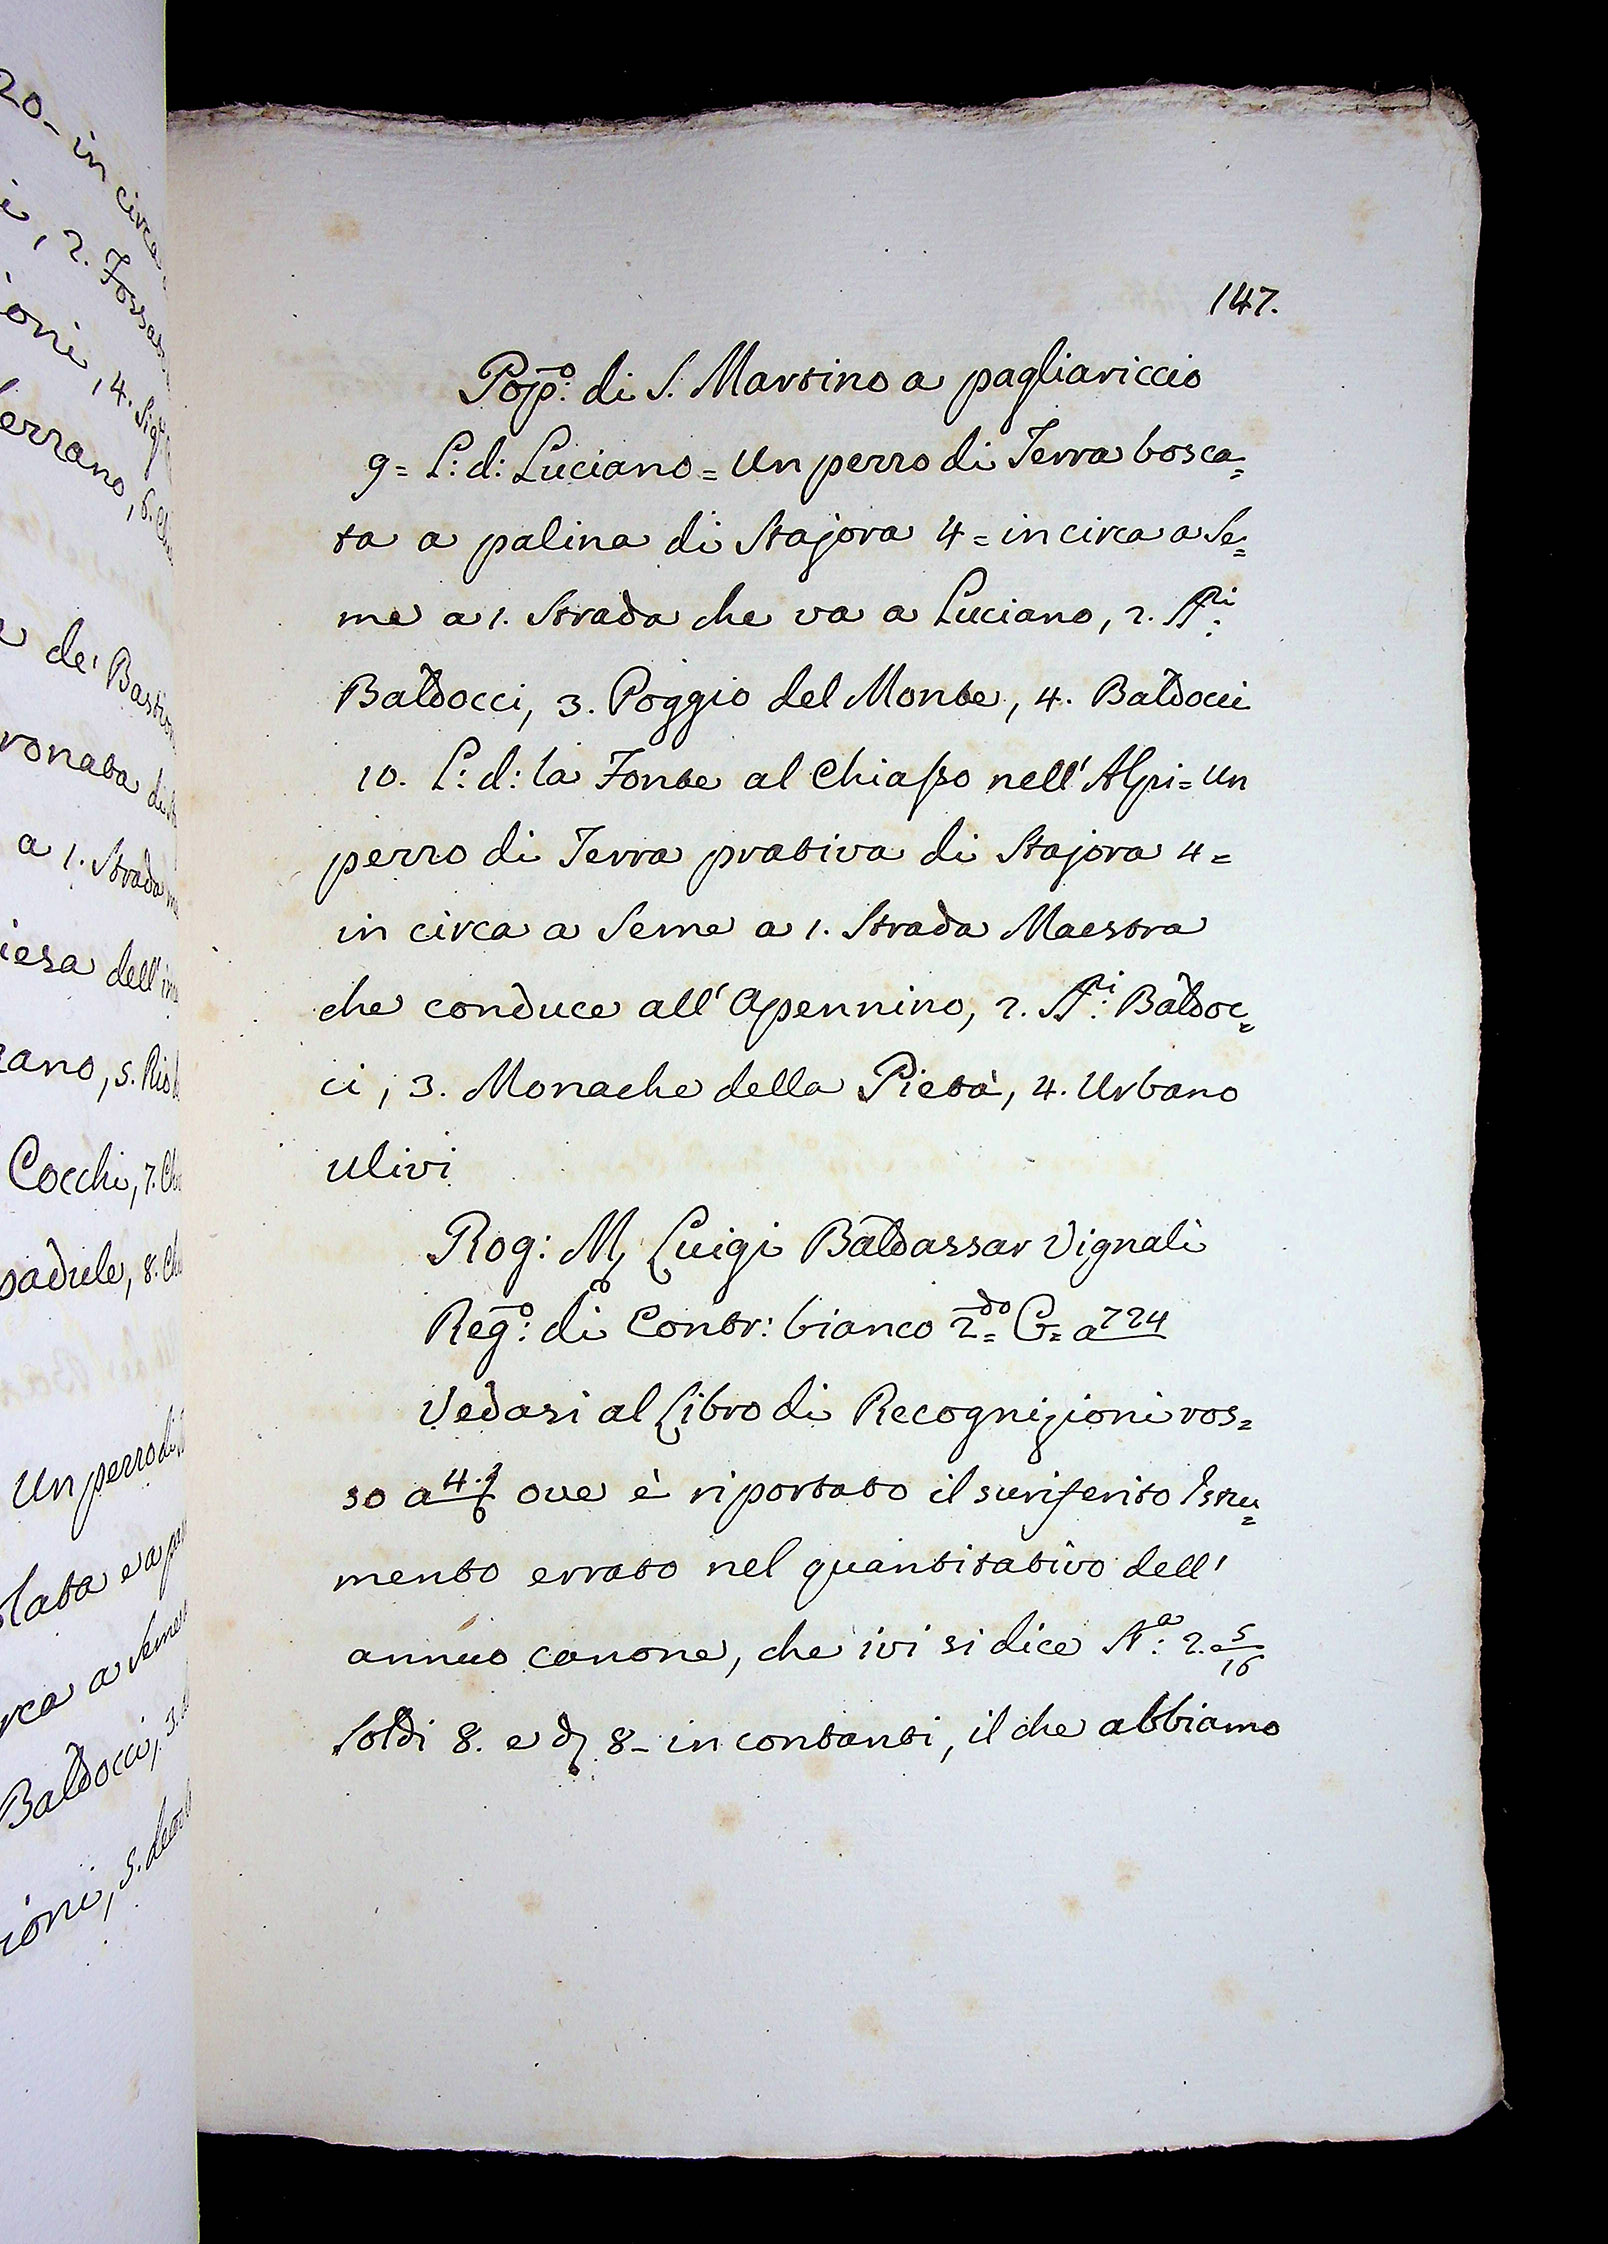 20- in circa
i, 2. Fossa
ioni, 4. Sig
errano, 6.
de' Bastion
ronata di
a 1. Strada
iesa dell'
zano, 5. Rio
Cocchi, 7.
padule, 8.
Un pezzo di
lata e a
rca a Seme
Baldocci, 3.
ioni, 5.
147.
Pop:o di S. Martino a pagliariccio
9= L: d: Luciano = Un pezzo di Terra bosca=
ta a palina di Stajora 4= in circa a Se=
me a 1. Strada che va a Luciano, 2. ffi:
Baldocci, 3. Poggio del Monte, 4. Baldocci
10. L: d: la Fonte al Chiasso nell' Alpi = Un
pezzo di Terra prativa di Stajora 4=
in circa a Seme a 1. Strada Maestra
che conduce all' Apennino, 2. ffi: Baldoc=
ci, 3. Monache della Pietà, 4. Urbano
Ulivi
Rog: M, Luigi Baldassar Vignali
Reg:o di Contr: bianco 2do= G= a 724
Vedasi al Libro di Recognizioni ros=
so a 4 ove è riportato il suriferito Istru=
mento errato nel quantitativo dell'
annuo canone, che ivi si dice St:a 2. 5/16
Soldi 8. e d 8- in contanti, il che abbiamo